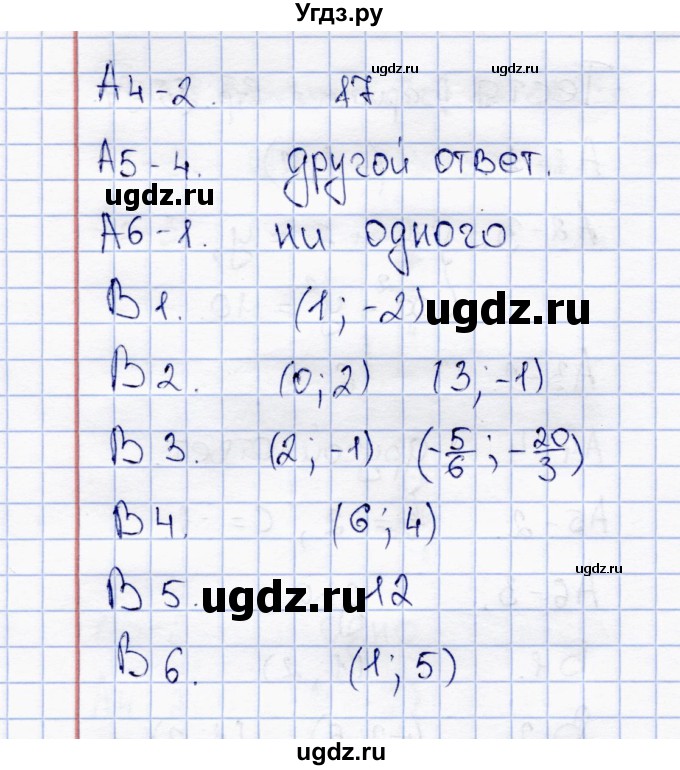 Угдз.ру
ugdz.ru ugdz.ru
А4-2. 17
А5-4. другой ответ.
ugdz.ru
А6-1. ни одного
В 1. (1; -2) ugdz.ru
В 2. (0; 2) (3; -1)
В 3. (2; -1) (-5/6; -20/3)
В 4. (6; 4)
ugdz.ru
В 5. ugdz.ru 12
В 6. (1; 5)
ugdz.ru